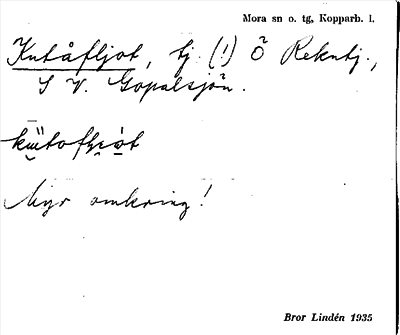 Mora sn o. tg, Kopparb. l.
Knutåfljot, tj (!) Ö Rekntj.,
S V. Gopalsjön.
Myr omkring!
Bror Lindén 1935